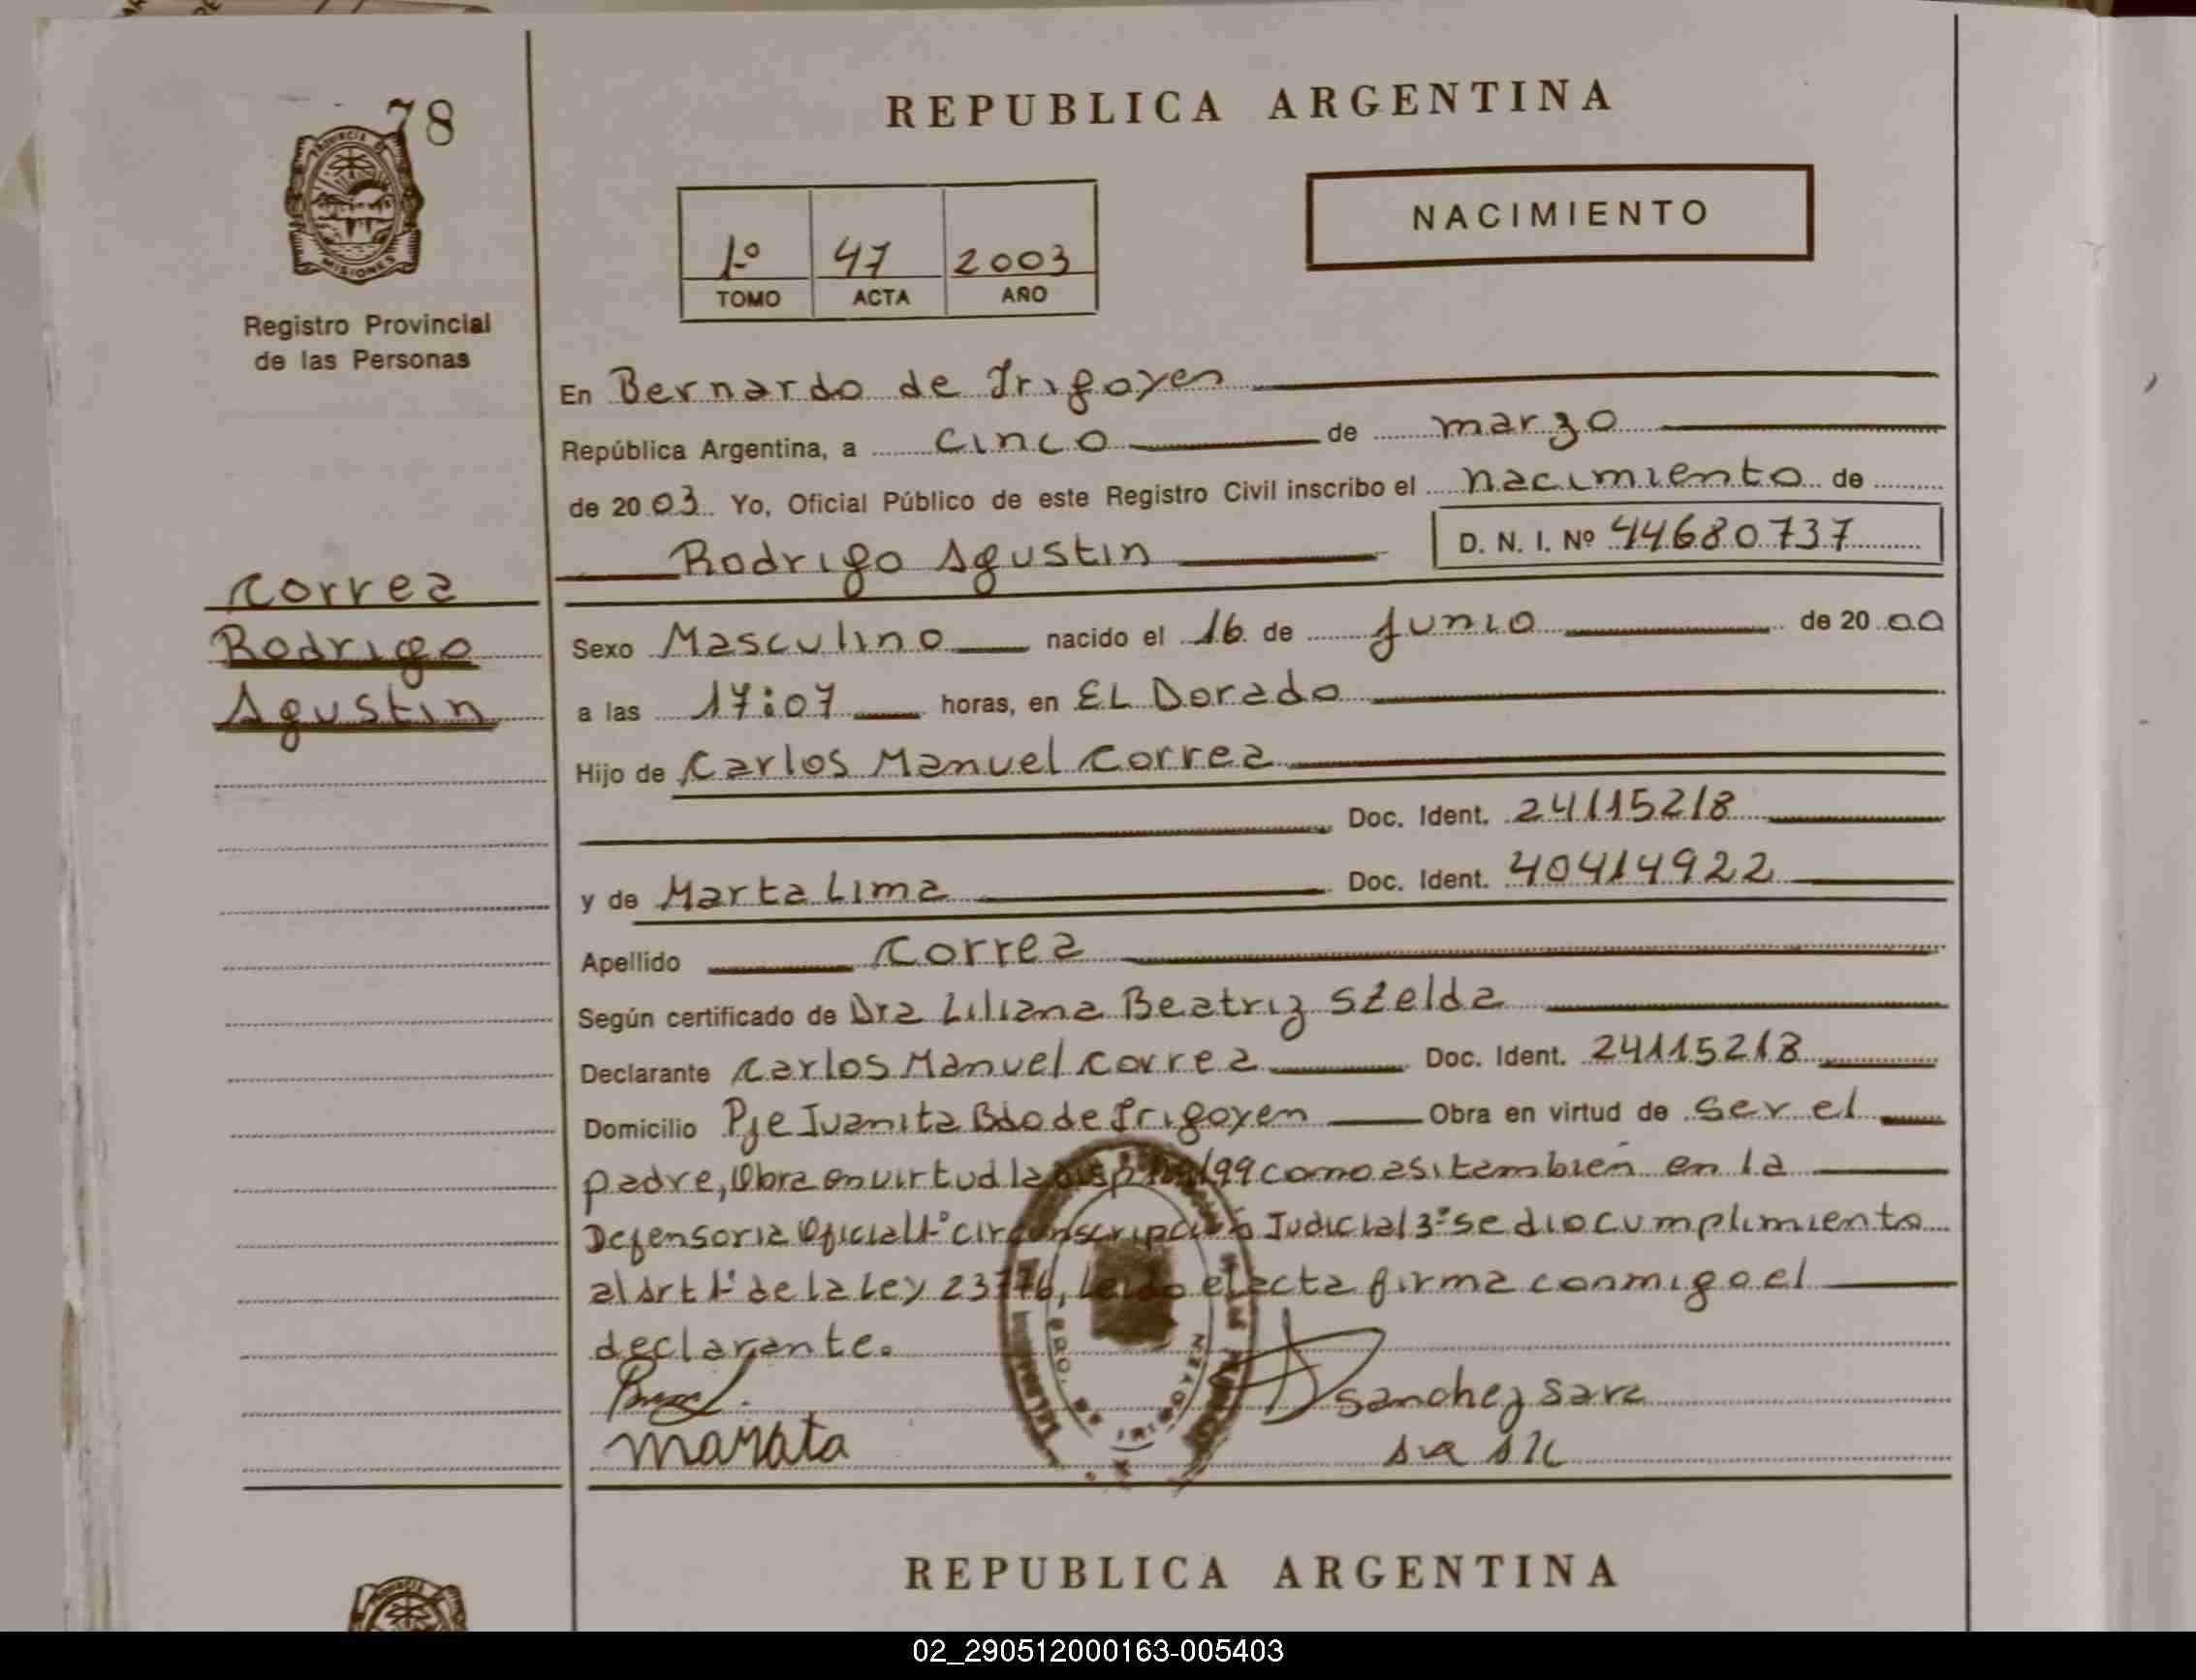 78
REPUBLICA ARGENTINA
PROVINCIA DE
MISIONES
Registro Provincial
de las Personas
1º 47 2003
TOMO ACTA AÑO
NACIMIENTO
En Bernardo de Irigoyen
República Argentina, a cinco de marzo
de 2003 Yo, Oficial Público de este Registro Civil inscribo el nacimiento de
Rodrigo Agustin D. N. I. Nº 44680737
Correa
Rodrigo
Agustin
Sexo Masculino nacido el 16 de Junio de 2000
a las 17:07 horas, en EL Dorado
Hijo de Carlos Manuel Correa
Doc. Ident. 24115218
y de Marta Lima Doc. Ident. 40414922
Apellido Correa
Según certificado de Dra Liliana Beatriz Szelda
Declarante Carlos Manuel Correa Doc. Ident. 24115218
Domicilio Pje Juanita Bdo de Irigoyen Obra en virtud de Ser el
padre, Obra en virtud la Disp /99 como asi tambien en la
Defensoria Oficial 1º circunscripcion Judicial 3º se dio cumplimiento
al Art 1º de la Ley 23776, Leido el acta firma conmigo el
declarante.
Sanchez Sara
marata
REPUBLICA ARGENTINA
02_290512000163-005403